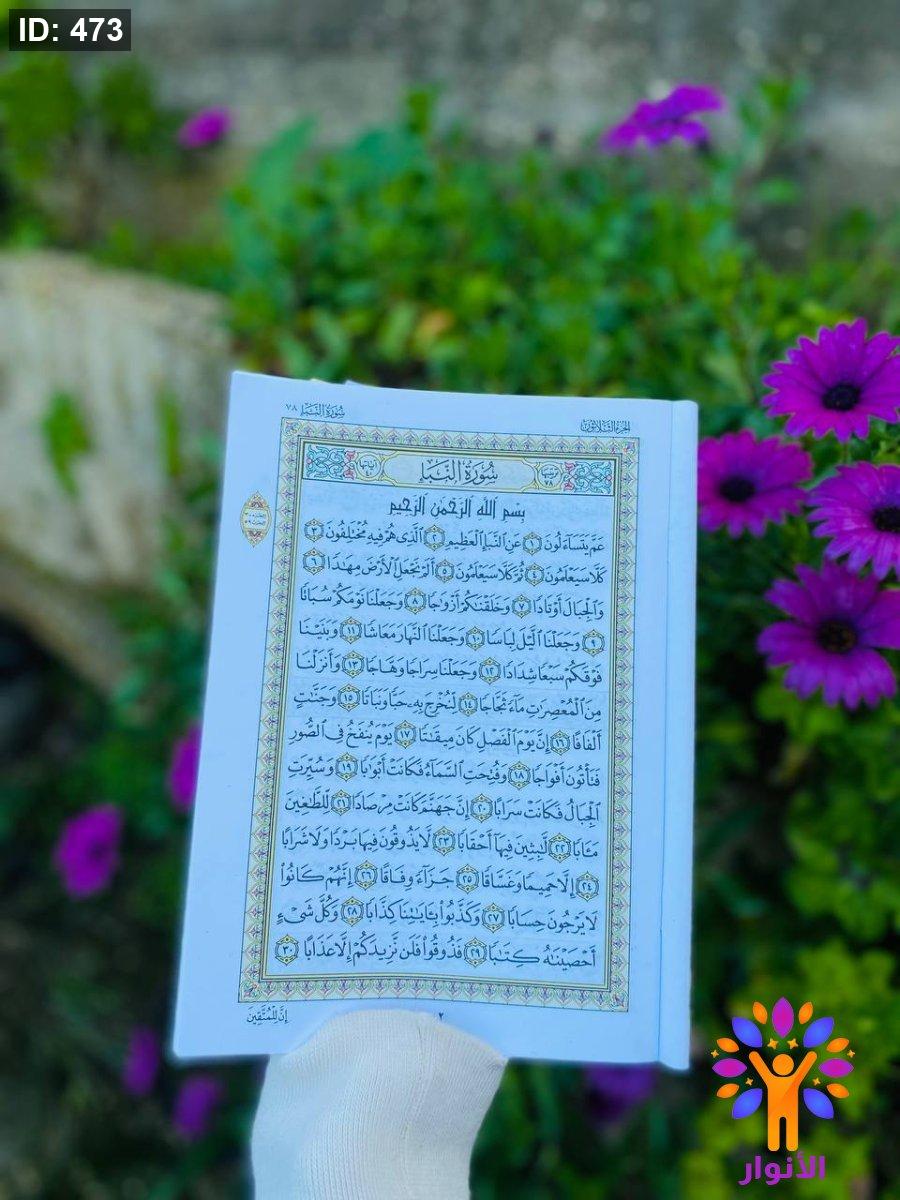 ID: 473
سُورَةُ النَّبَإِ ٧٨
الجزء الثلاثون
ترتيبها ٧٨
سُورَةُ النَّبَإِ
آياتها ٤٠
بِسْمِ ٱللَّهِ ٱلرَّحْمَٰنِ ٱلرَّحِيمِ
عَمَّ يَتَسَآءَلُونَ ١ عَنِ ٱلنَّبَإِ ٱلْعَظِيمِ ٢ ٱلَّذِى هُمْ فِيهِ مُخْتَلِفُونَ ٣
كَلَّا سَيَعْلَمُونَ ٤ ثُمَّ كَلَّا سَيَعْلَمُونَ ٥ أَلَمْ نَجْعَلِ ٱلْأَرْضَ مِهَٰدًا ٦
وَٱلْجِبَالَ أَوْتَادًا ٧ وَخَلَقْنَٰكُمْ أَزْوَٰجًا ٨ وَجَعَلْنَا نَوْمَكُمْ سُبَاتًا
٩ وَجَعَلْنَا ٱلَّيْلَ لِبَاسًا ١٠ وَجَعَلْنَا ٱلنَّهَارَ مَعَاشًا ١١ وَبَنَيْنَا
فَوْقَكُمْ سَبْعًا شِدَادًا ١٢ وَجَعَلْنَا سِرَاجًا وَهَّاجًا ١٣ وَأَنزَلْنَا
مِنَ ٱلْمُعْصِرَٰتِ مَآءً ثَجَّاجًا ١٤ لِّنُخْرِجَ بِهِۦ حَبًّا وَنَبَاتًا ١٥ وَجَنَّٰتٍ
أَلْفَافًا ١٦ إِنَّ يَوْمَ ٱلْفَصْلِ كَانَ مِيقَٰتًا ١٧ يَوْمَ يُنفَخُ فِى ٱلصُّورِ
فَتَأْتُونَ أَفْوَاجًا ١٨ وَفُتِحَتِ ٱلسَّمَآءُ فَكَانَتْ أَبْوَٰبًا ١٩ وَسُيِّرَتِ
ٱلْجِبَالُ فَكَانَتْ سَرَابًا ٢٠ إِنَّ جَهَنَّمَ كَانَتْ مِرْصَادًا ٢١ لِّلطَّٰغِينَ
مَـَٔابًا ٢٢ لَّٰبِثِينَ فِيهَآ أَحْقَابًا ٢٣ لَّا يَذُوقُونَ فِيهَا بَرْدًا وَلَا شَرَابًا
٢٤ إِلَّا حَمِيمًا وَغَسَّاقًا ٢٥ جَزَآءً وِفَاقًا ٢٦ إِنَّهُمْ كَانُوا۟
لَا يَرْجُونَ حِسَابًا ٢٧ وَكَذَّبُوا۟ بِـَٔايَٰتِنَا كِذَّابًا ٢٨ وَكُلَّ شَىْءٍ
أَحْصَيْنَٰهُ كِتَٰبًا ٢٩ فَذُوقُوا۟ فَلَن نَّزِيدَكُمْ إِلَّا عَذَابًا ٣٠
٢
إِنَّ لِلْمُتَّقِينَ
الأنوار